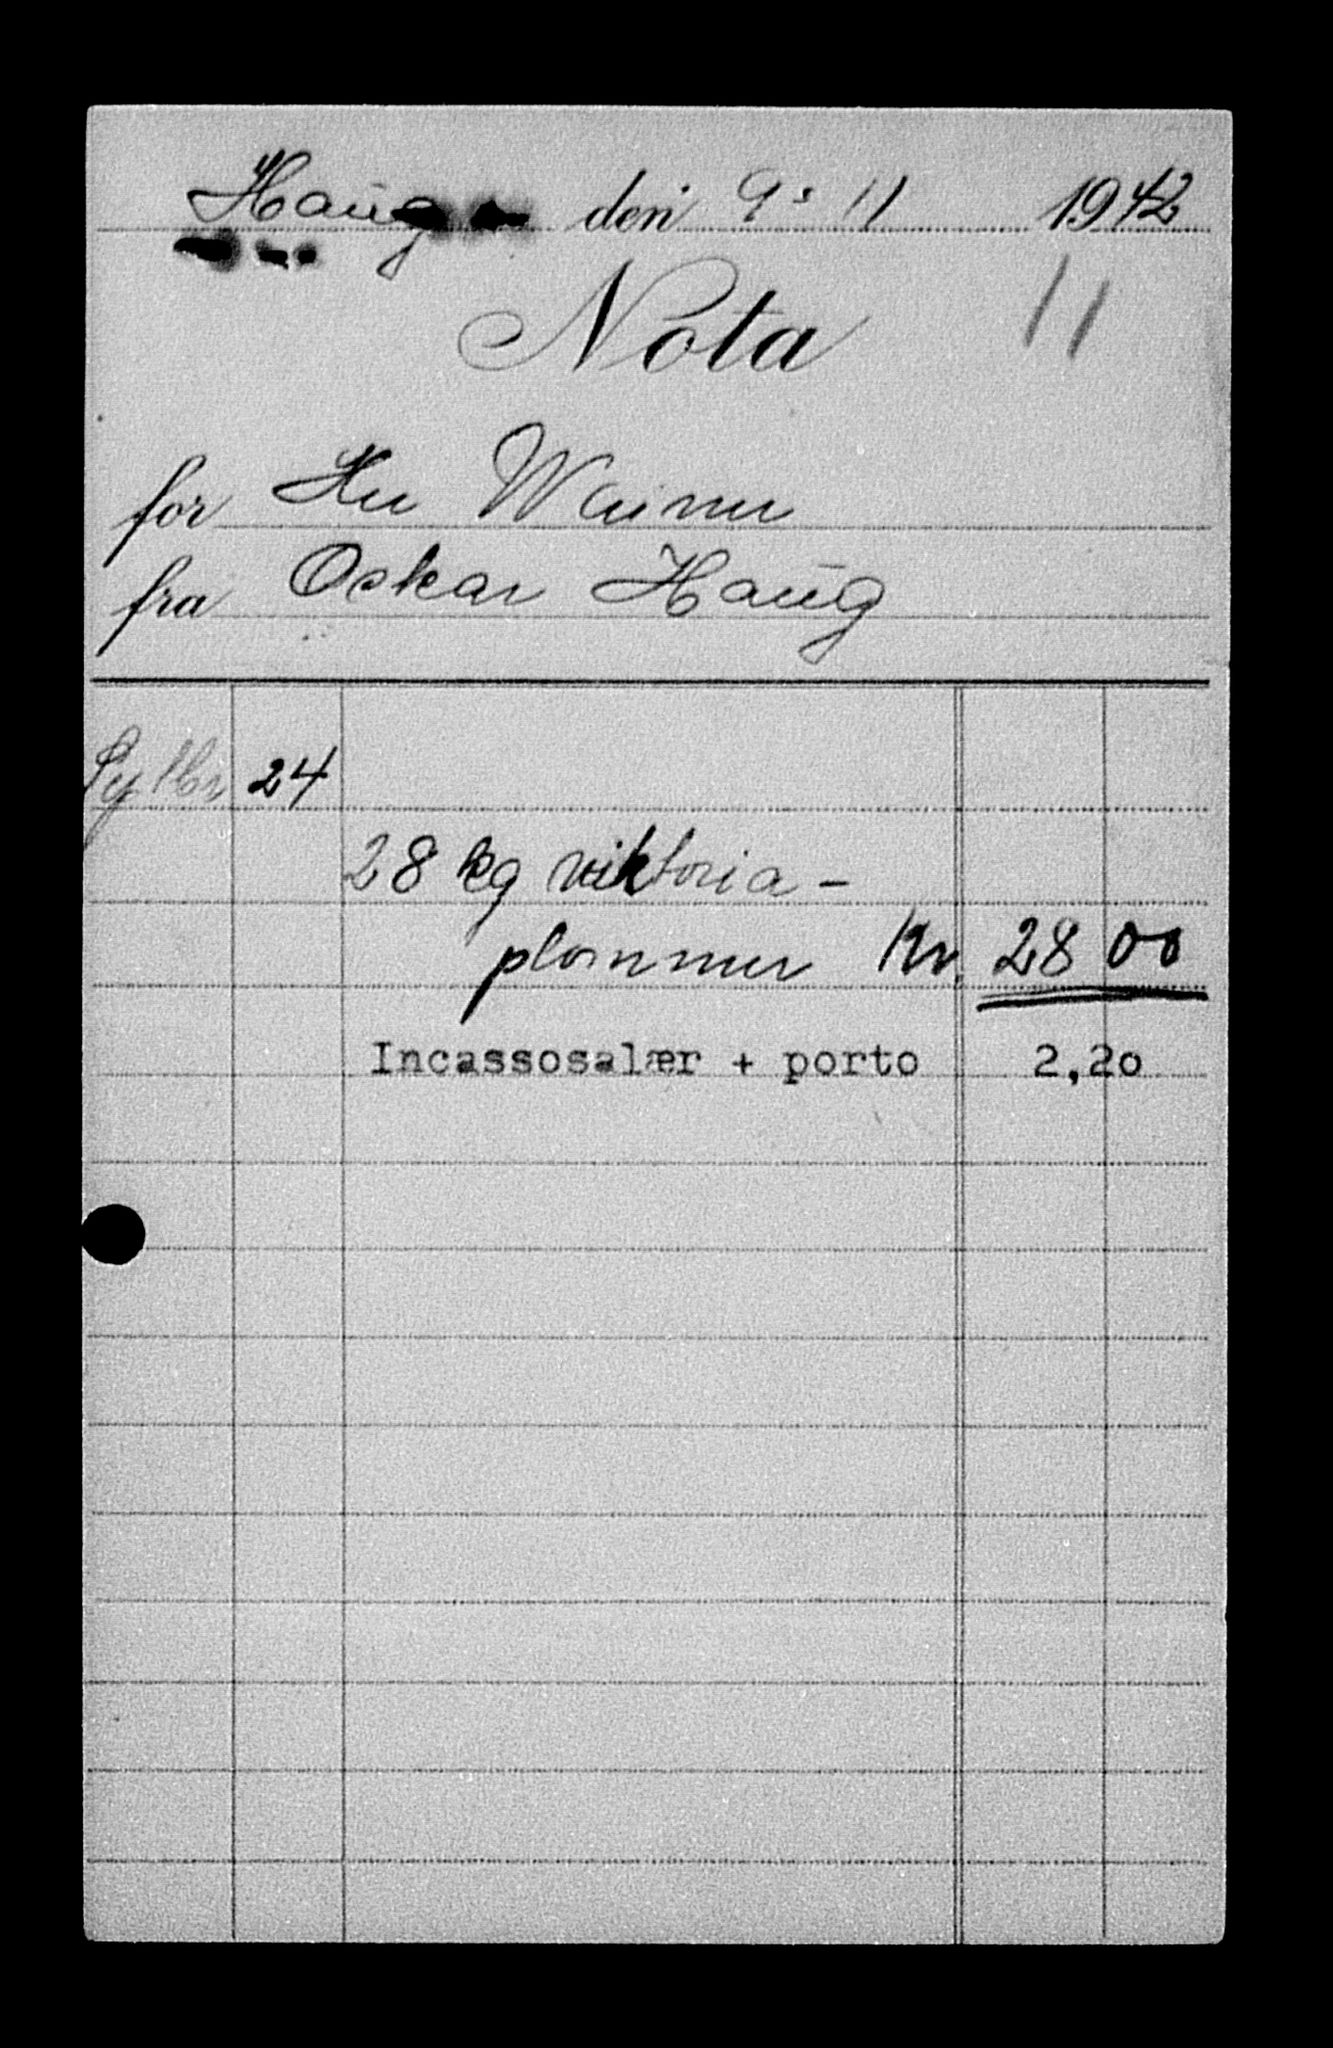 Haug den 9 11 1942
Nota
11
for Hr Weiner
fra Oskar Haug
24
28 kg viktoria-
plommer Kr. 28 00
Incassosalær + porto 2,20